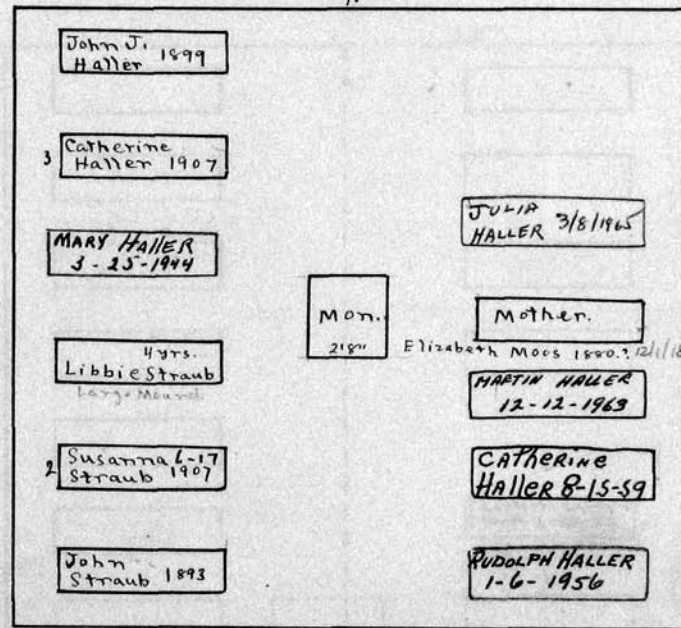 John J.
Haller 1899
3 Catherine
Haller 1907
MARY HALLER
3-25-1944
4 yrs.
Libbie Straub
Large Mound
2 Susanna 6-17
Straub 1907
John
Straub 1893
Mon.
JULIA
HALLER 3/8/1965
Mother.
Elizabeth Moos 1880.?
MARTIN HALLER
12-12-1963
CATHERINE
HALLER 8-15-59
RUDOLPH HALLER
1-6-1956